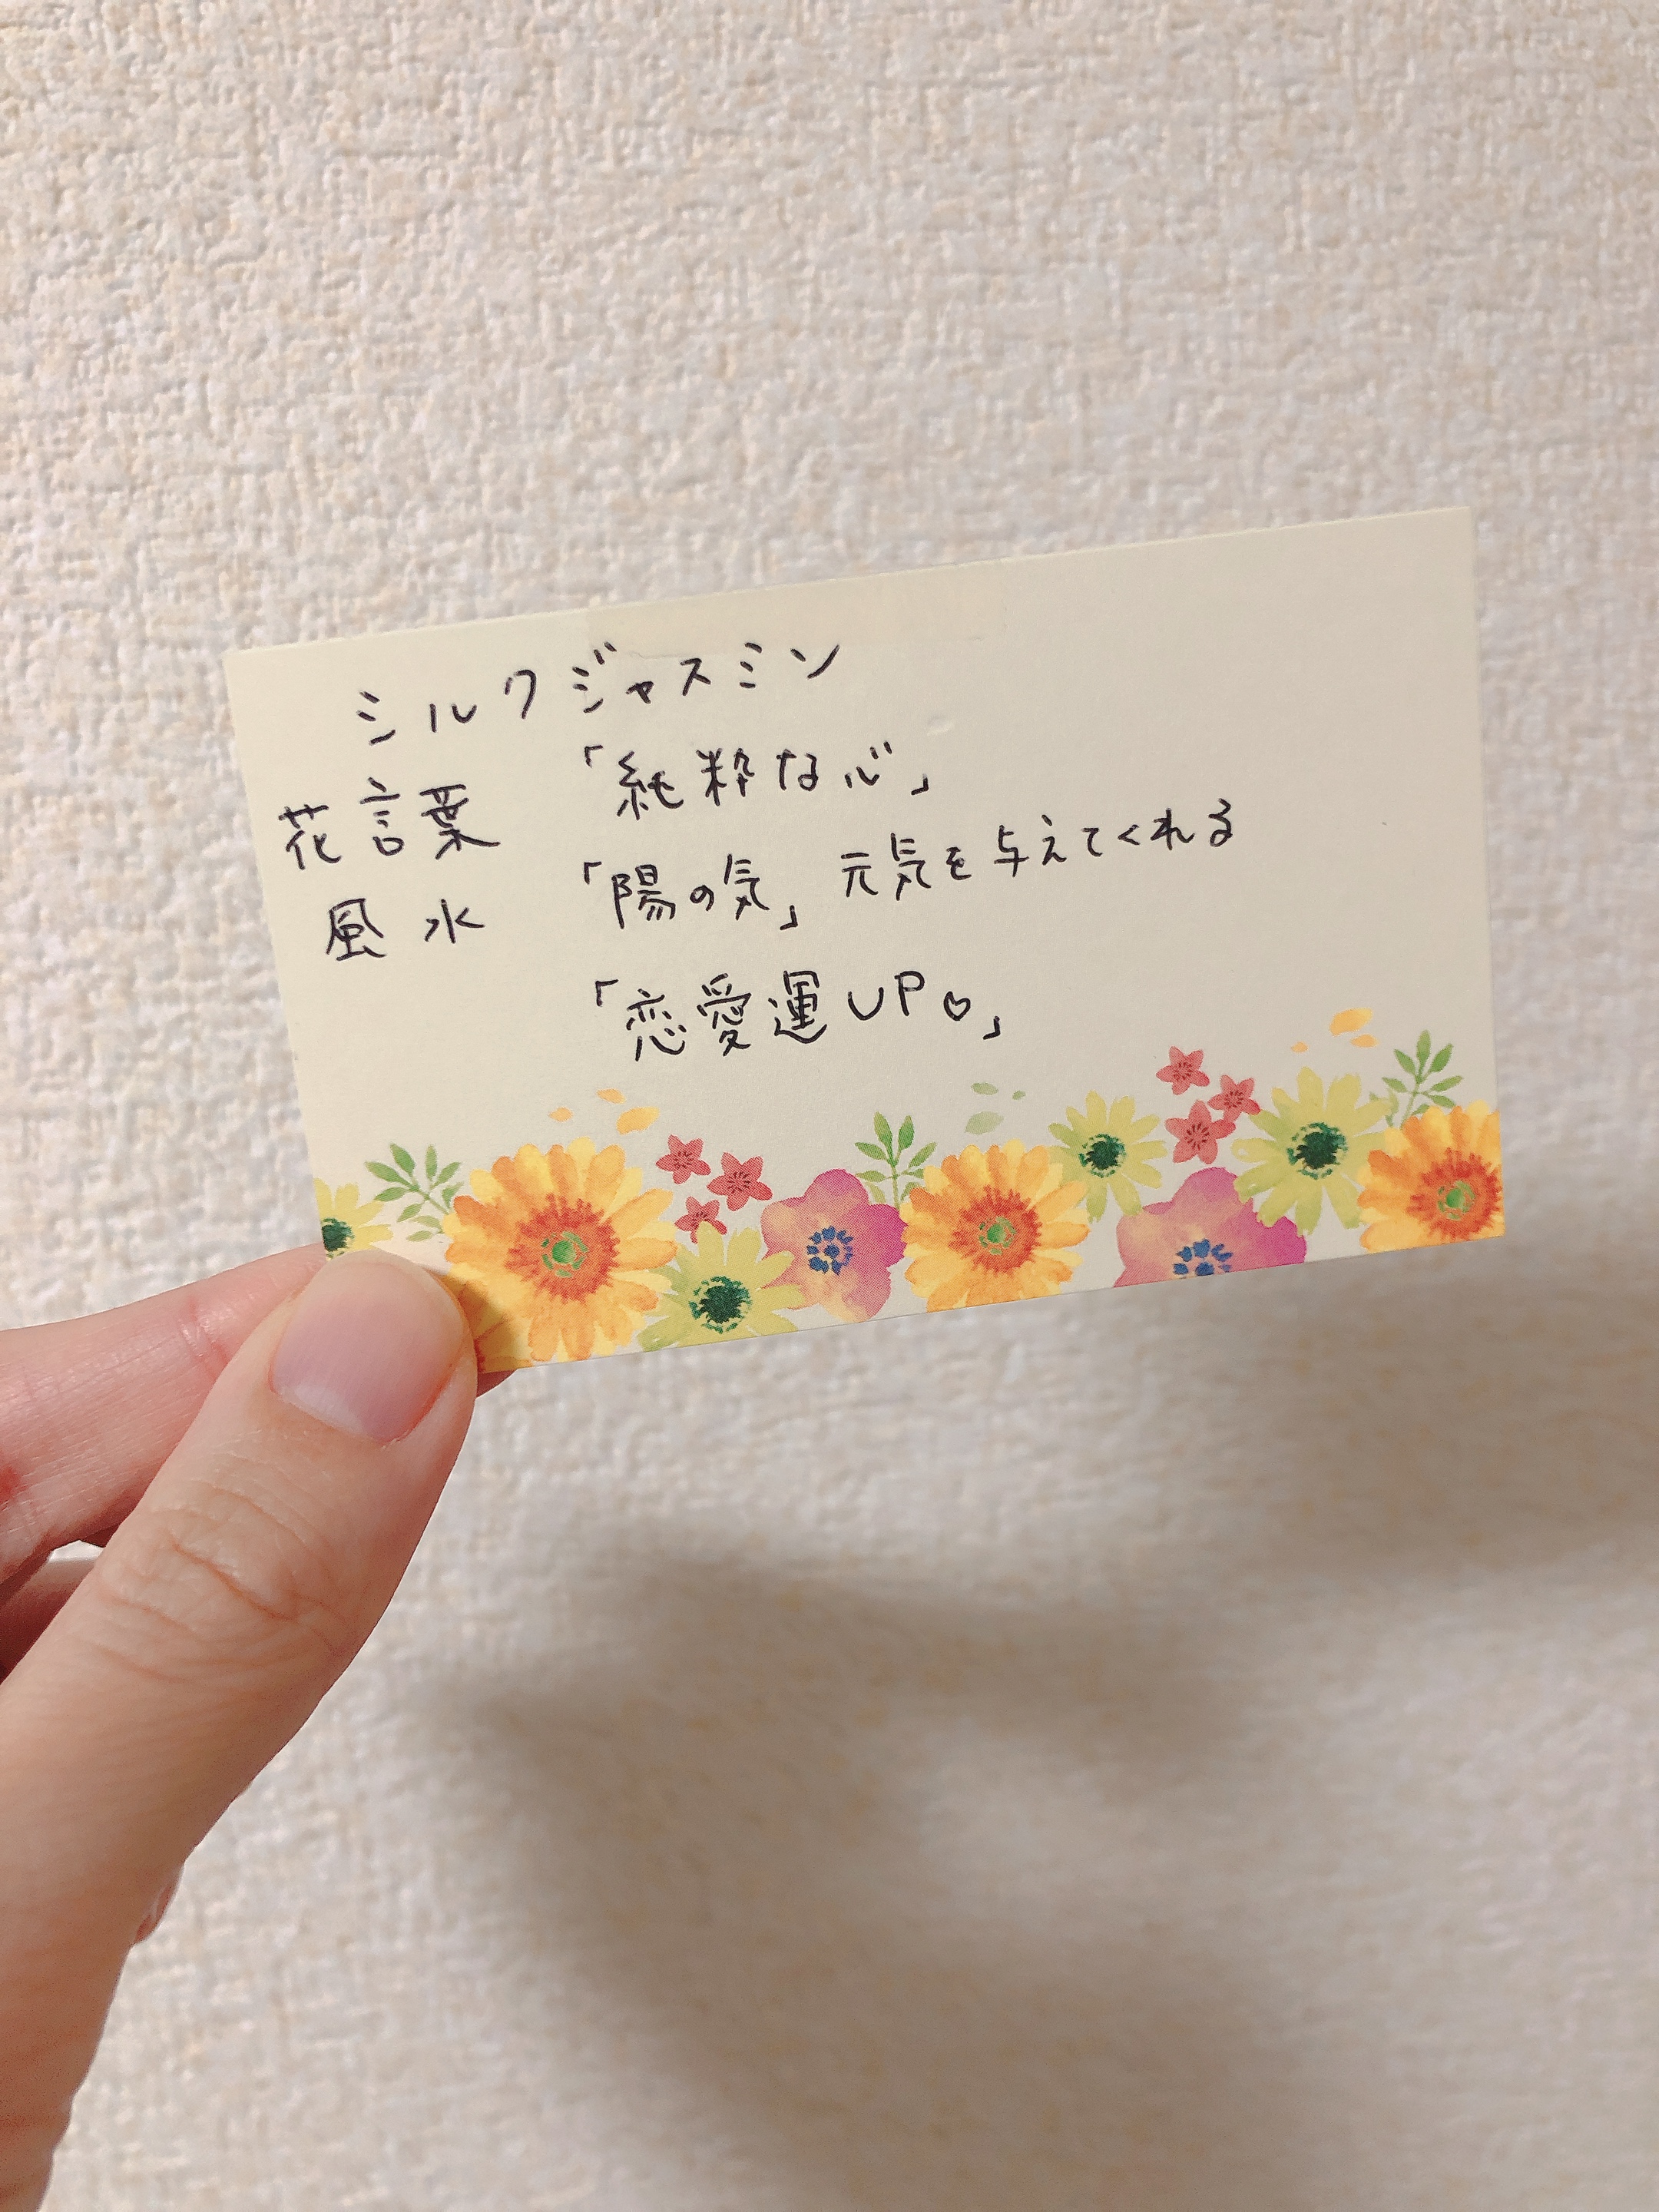 シルクジャスミン
花言葉 「純粋な心」
風水 「陽の気」元気を与えてくれる
「恋愛運UP♡」